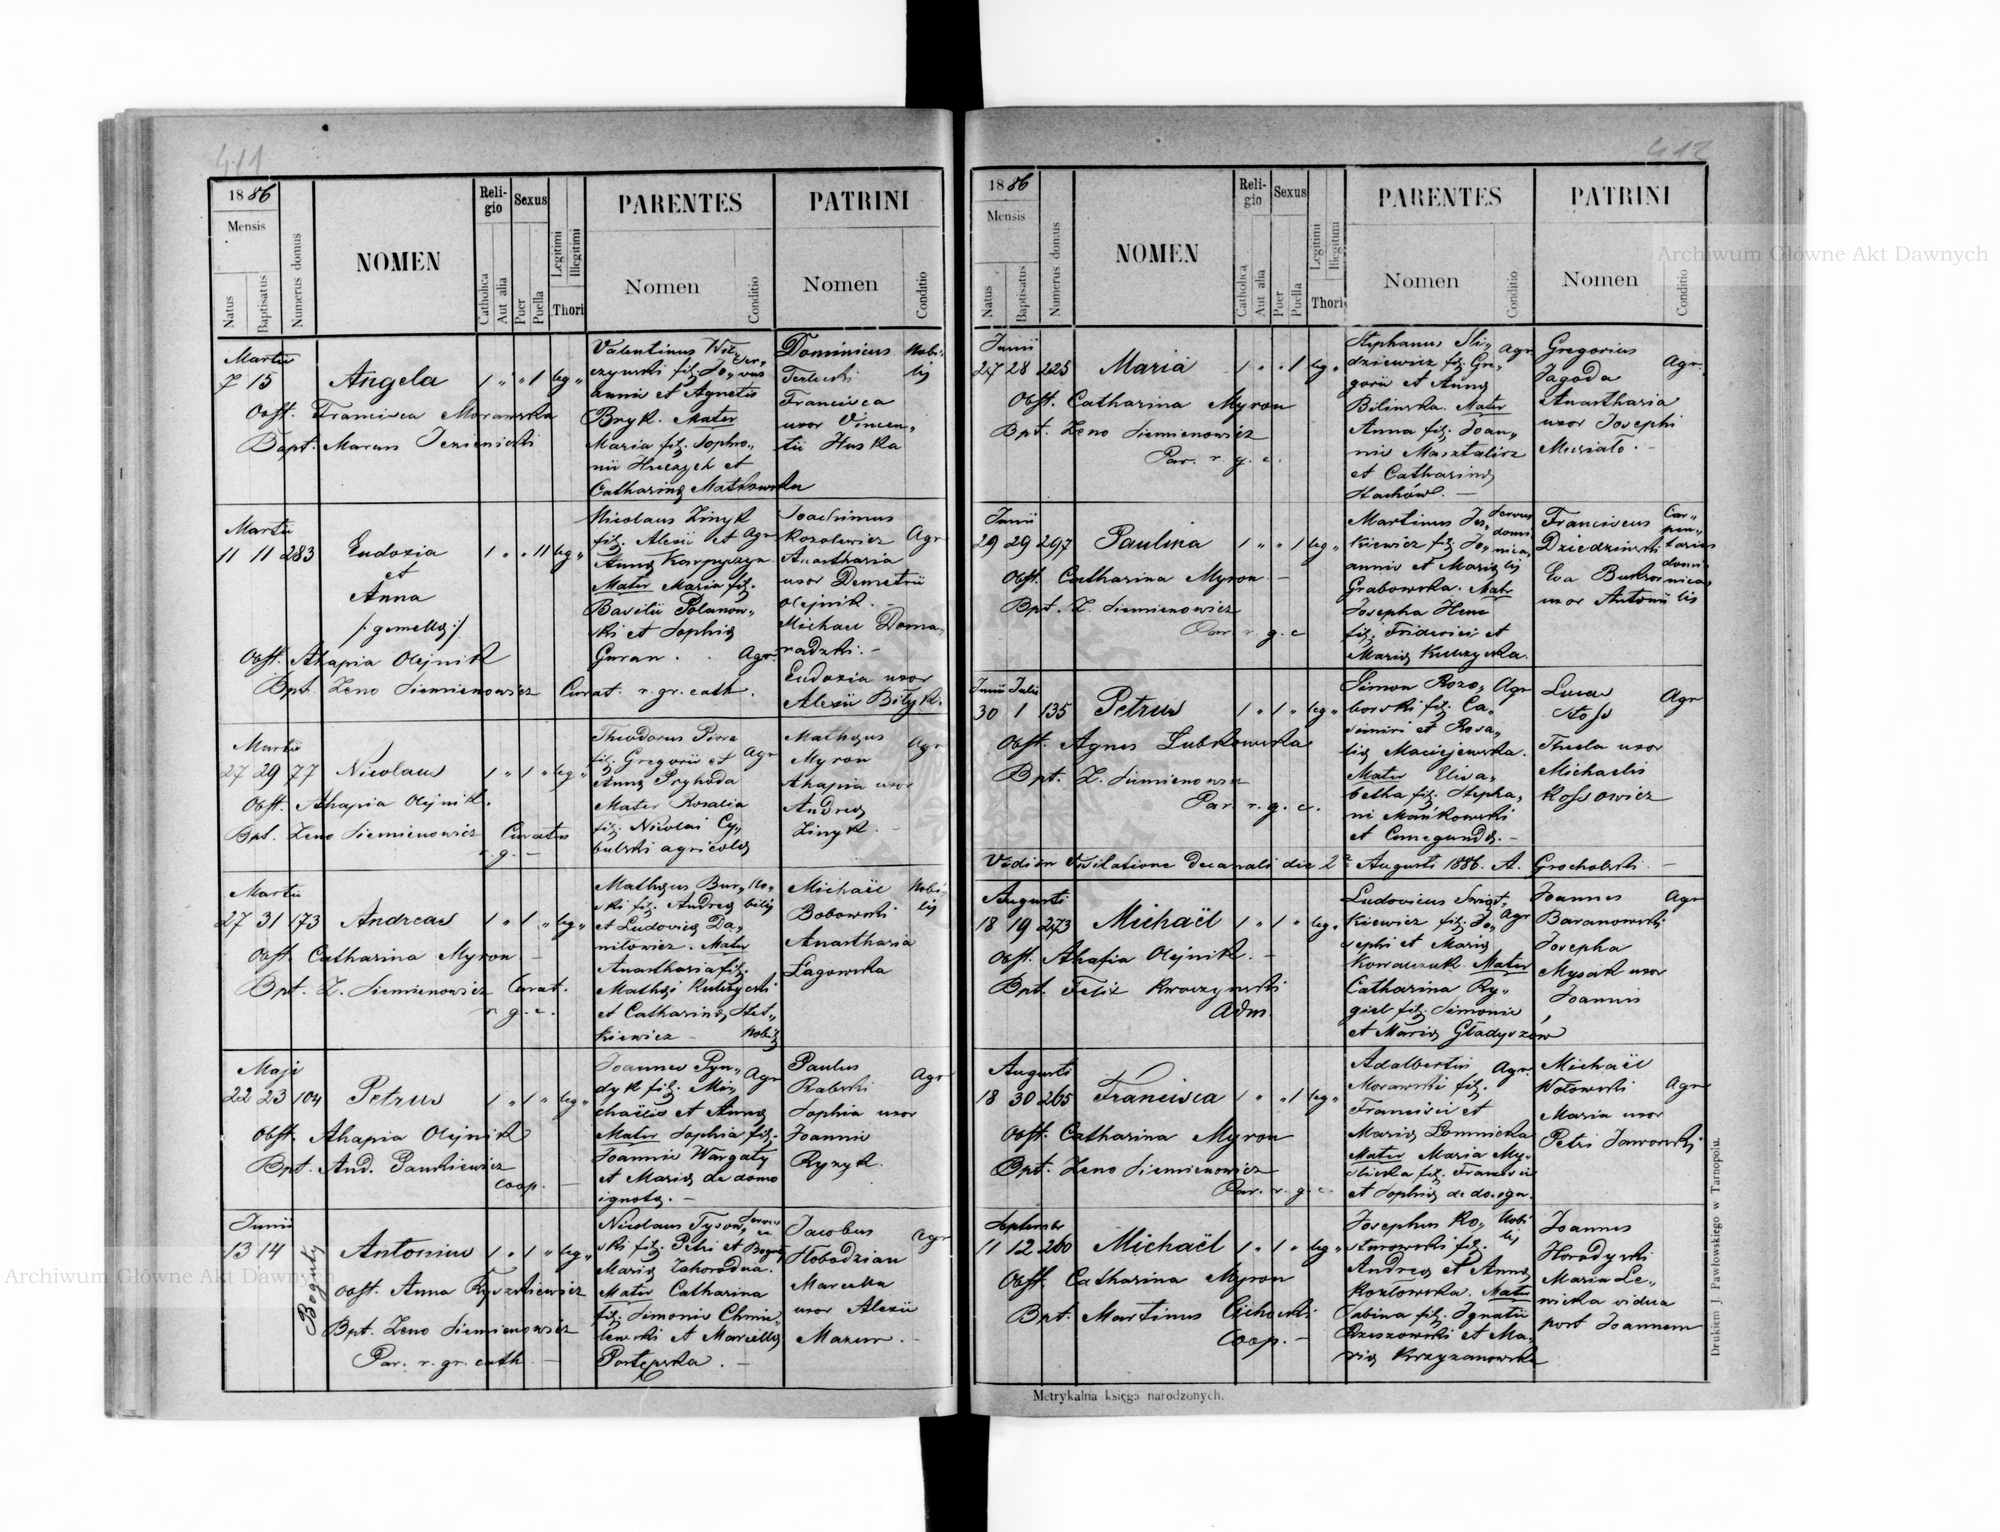 411
1886
Mensis
Natus
Baptisatus
Numerus domus
NOMEN
Reli-
gio
Catholica
Aut alia
Sexus
Puer
Puella
Legitimi
Illegitimi
Thori
PARENTES
Nomen
Conditio
PATRINI
Nomen
Conditio
Martii
7 15 Angela 1 " " 1 leg "
Obst. Francisca Morawska
Bapt. Marcus
Valentinus
annis et Agnetis
Bryk. Mater
Maria filj. Sophro„
nii et
Catharinę Matkowska
Dominicus
Terlecki
Francisca
uxor Vincen„
tii Huska
Nobi„
lis
Martii
11 11 283 Eudoxia 1 " " 11 leg "
et
Anna
/: gemellę :/
Obst. Ahapia Olejnik
Bpt. Zeno Siemienowicz Curat. r. gr. cath.
Nicolaus Zinyk
filj. Alexii et Agr
Annę
Mater Maria filj.
Basilii Polanow„
ski et Sophię
Guran . . Agr.
Joachimus
Kozolewicz
Anasthasia
uxor Demetrii
Olejnik. –
Michael Doma„
radzki. –
Eudoxia uxor
Alexii Biłyk.
Agr
Martii
27 29 77 Nicolaus 1 " 1 " leg "
Obst. Ahapia Olejnik.
Bpt. Zeno Siemienowicz Curatus
r. g. –
Theodorus
filj. Gregorii et Agr
Annę Pryhoda
Mater Rosalia
filj. Nicolai Cy„
bulski agricolę
Matheus
Myron
Ahapia uxor
Andreę
Zinyk. –
Agr
Martii
27 31 173 Andreas 1 " 1 " leg "
Obst. Catharina Myron –
Bpt. Z. Siemienowicz Curat.
r. g. c.
Matheus Bur„ No„
ski filj. Andreę bilis
et Ludovicę Da„
nilowicz. Mater
Anasthasia filj.
Mathei Kulczycki
et Catharinę Stet„
kiewicz – Nobilis
Michaël
Bobowski
Anasthasia
Łagowska
Nobi„
lis
Maji
22 23 104 Petrus 1 " 1 " leg "
Obst. Ahapia Olejnik
Bpt. And. Pankiewicz
coop. –
Joannes Pyn„ Agr
dyk filj. Mi„
chaëlis et Annę
Mater Sophia filj.
Joannis Wargaty
et Marię de domo
ignotę. –
Paulus
Rabski
Sophia uxor
Joannis
Ryzyk.
Agr
Junii
13 14 Antonius 1 " 1 " leg "
Boguty
Obst. Anna
Bpt. Zeno Siemienowicz
Par. r. gr. cath. –
Nicolaus Tysow„
ski filj. Petri et
Marię Zahorodna.
Mater Catharina
filj. Simonis Chmie„
lewski et Marcellę
Jacobus
Hobodzian
Marcella
uxor Alexii
Mazur. –
Agr
412
1886
Mensis
Natus
Baptisatus
Numerus domus
NOMEN
Reli-
gio
Catholica
Aut alia
Sexus
Puer
Puella
Legitimi
Illegitimi
Thori
PARENTES
Nomen
Conditio
PATRINI
Nomen
Conditio
Junii
27 28 225 Maria 1 " " 1 leg "
Obst. Catharina Myron
Bpt. Zeno Siemienowicz
Par. r. g. c.
Stephanus Śli„ Agr
dziewicz filj. Gre„
gorii et Annę
Bilinska. Mater
Anna filj. Joan„
nis Masztalirz
et Catharinę
Stachów. –
Gregorius
Jagoda
Anasthasia
uxor Josephi
Musiało. –
Agr.
Junii
29 29 297 Paulina 1 " " 1 leg "
Obst. Catharina Myron. –
Bpt. Z. Siemienowicz
Par. r. g. c
Martinus Jes„
kiewicz filj. Jo„
annis et Marię
Grabowska. Mater
Josepha Henc
filj. Friderici et
Marię Kulczycka.
Servus
domi
nica
lis
Franciscus
Dziedzinski
Eva
uxor Antonii
Car„
pen„
tarius
domi„
nica
lis
Junii Julii
30 1 135 Petrus 1 " 1 " leg "
Obst. Agnes Lubkowska
Bpt. Z. Siemienowicz
Par. r. g. c.
Simon Rozo„ Agr
borski filj. Ca„
simiri et Rosa„
lię Maciejewska.
Mater Elisa„
betha filj. Stepha„
ni Mańkowski
et Cunegundę. –
Lucas
Stoss
Thecla uxor
Michaelis
Kossowicz
Agr
Vidi in Visitatione decanali die 2ª Augusti 1886. A. Grocholski. –
Augusti
18 19 273 Michaël 1 " 1 " leg "
Obst. Ahafia Olejnik. –
Bpt. Felix Kwaczynski
Adm.
Ludovicus Świąt„
kiewicz filj. Jo„ Agr
sephi et Marię
Kowalczuk. Mater
Catharina Ry„
giel filj. Simonis
et Marię Gładyszów
Joannes
Baranowski
Josepha
Mysak uxor
Joannis
Agr
Augusti
18 30 265 Francisca 1 " " 1 leg "
Obst. Catharina Myron
Bpt. Zeno Siemienowicz
Par. r. g. c.
Adalbertus Agr.
Morawski filj.
Francisci et
Marię Łomnicka
Mater Maria My„
slicka filj. Francisci
et Sophię de do. ign.
Michaël
Wołowski
Maria uxor
Petri Jaworski
Agr
September
11 12 260 Michaël 1 " 1 " leg "
Obst. Catharina Myron
Bpt. Martinus Cichocki
Coop. –
Josephus Ko„ Nobi
sturowski filj. lis
Andreę et Annę
Kozłowska. Mater
Sabina filj. Ignatii
Rzeszowski et Ma„
rię Krzyżanowska
Joannes
Horodyski
Maria Le„
wicka vidua
post Joannem
Metrykalna księga narodzonych.
Drukiem J. Pawłowskiego w Tarnopolu.
Archiwum Główne Akt Dawnych
Archiwum Główne Akt Dawnych